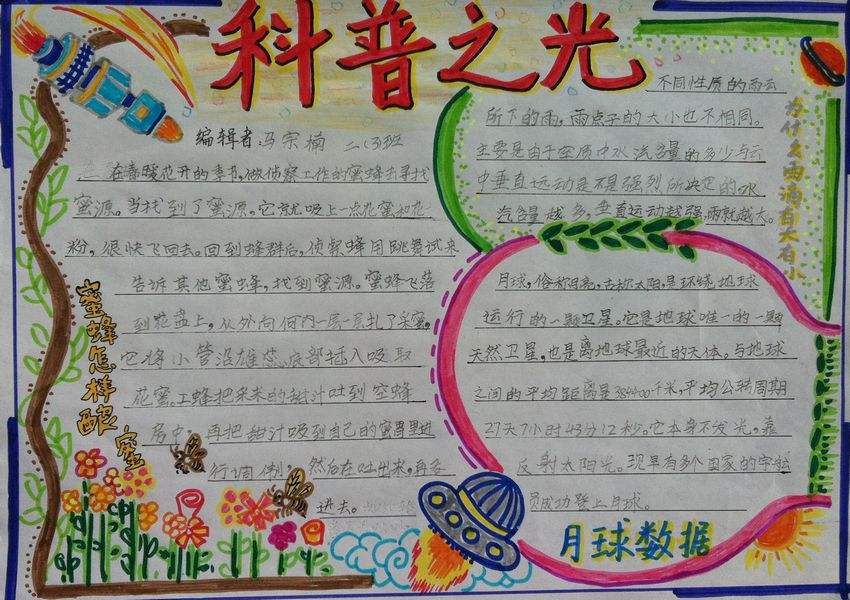 科普之光
编辑者:马宗楠 二(3)班
蜜蜂怎样酿蜜
在春暖花开的季节,做侦察工作的蜜蜂去寻找
蜜源。当找到了蜜源,它就吸上一点花蜜和花
粉,很快飞回去。回到蜂群后,侦察蜂用跳舞试来
告诉其他蜜蜂,找到蜜源。蜜蜂飞落
到花蕊上,从外向
它将小管沿雄蕊底部插入吸取
花蜜。工蜂把采来的甜汁吐到空蜂
房中,再把甜汁吸到自己的蜜胃里进
行调制,然后在吐出来,再
进去。
为什么雨滴有大有小
不同性质的雨云
所下的雨,雨点子的大小也不相同。
主要是由于空质中水汽含量的多少与云
中垂直运动是不是强烈所决定的。水
汽含量越多,垂直运动越强,雨就越大。
月球,俗称月亮,古称太阳,是环绕地球
运行的一颗卫星。它是地球唯一的一颗
天然卫星,也是离地球最近的天体。与地球
之间的平均距离是384400千米,平均公转周期
27天7小时43分12秒。它本身不发光,靠
反射太阳光。现早有多个国家的宇航
员成功登上月球。
月球数据